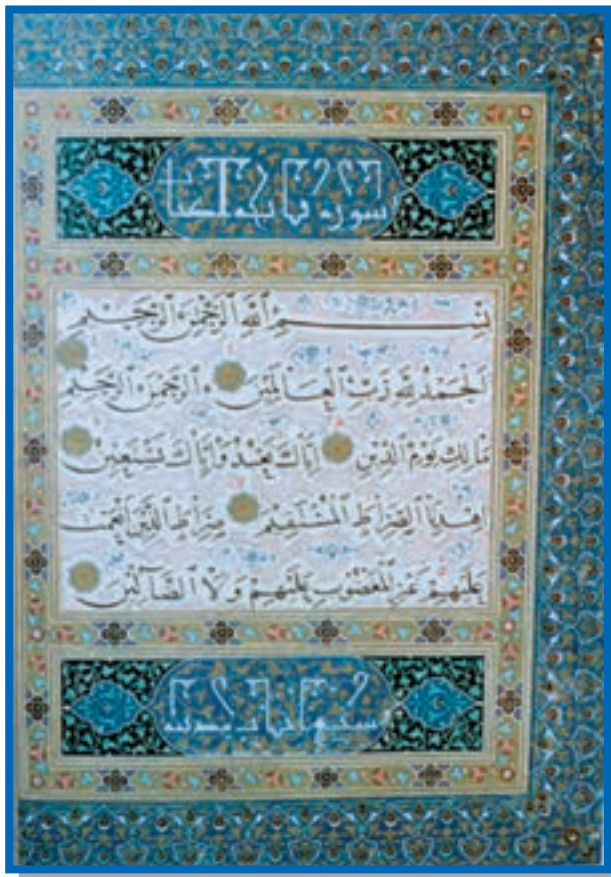 سورة فاتحة الكتاب
بسم الله الرحمن الرحيم
الحمد لله رب العالمين الرحمن الرحيم
مالك يوم الدين اياك نعبد واياك نستعين
اهدنا الصراط المستقيم صراط الذين انعمت
عليهم غير المغضوب عليهم ولا الضالين
سبع ايات مدنية